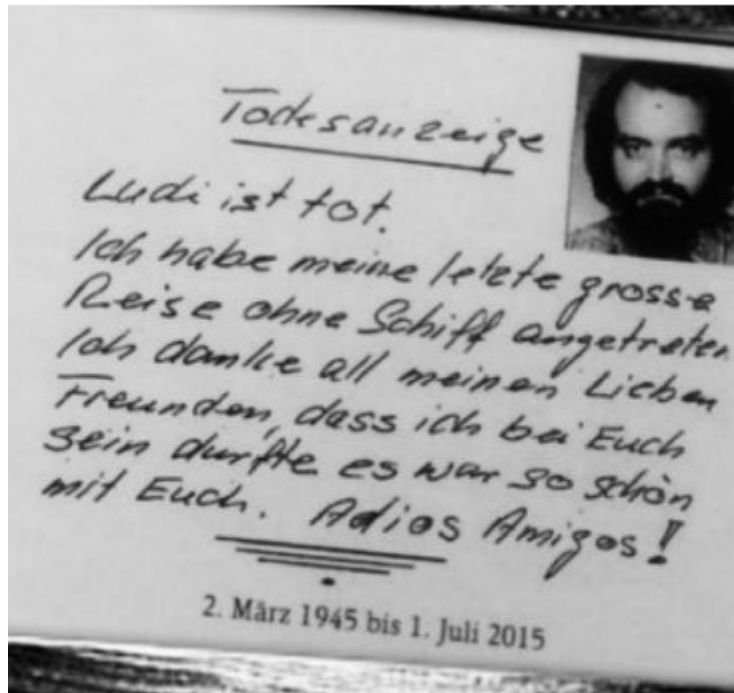 Todesanzeige
Ludi ist tot.
Ich habe meine letzte grosse
Reise ohne Schiff angetreten
Ich danke all meinen Lieben
Freunden, dass ich bei Euch
sein durfte es war so schön
mit Euch. Adios Amigos!
2. März 1945 bis 1. Juli 2015